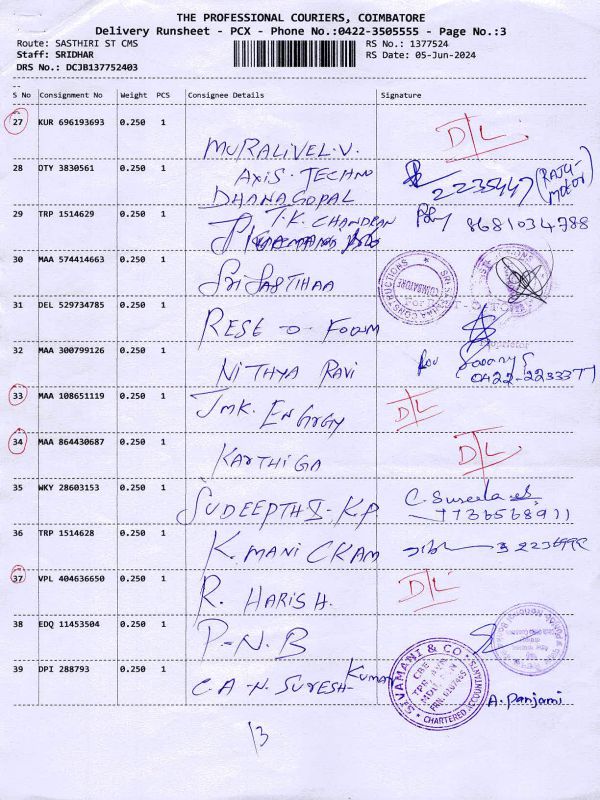 THE PROFESSIONAL COURIERS, COIMBATORE
Delivery Runsheet - PCX - Phone No.:0422-3505555 - Page No.:3
Route: SASTHIRI ST CMS RS No.: 1377524
Staff: SRIDHAR RS Date: 05-Jun-2024
DRS No.: DCJB137752403
S No Consignment No Weight PCS Consignee Details Signature
27 KUR 696193693 0.250 1 MURALIVEL.V. D/L
28 DTY 3830561 0.250 1 AXIS. TECHNO
DHANAGOPAL 2235447 (RAJU-
MOTOR)
29 TRP 1514629 0.250 1 T.K. CHANDRAN 8681034788
30 MAA 574414663 0.250 1 SRI SASTIHAA
SRI SASTHA CONSTRUCTIONS * COIMBATORE
31 DEL 529734785 0.250 1 REST-O-FOAM
For REST-O-FOAM
Proprietor
32 MAA 300799126 0.250 1 NITHYA RAVI
0422-2233377
33 MAA 108651119 0.250 1 JMK. ENGRGY D/L
34 MAA 864430687 0.250 1 KARTHIGA D/L
35 WKY 28603153 0.250 1 SUDEEPTH - K.P C. Suseela
7736568911
36 TRP 1514628 0.250 1 K. MANICKAM
37 VPL 404636650 0.250 1 R. HARISH. D/L
38 EDQ 11453504 0.250 1 P-N-B
39 DPI 288793 0.250 1 C.A-N. SURESH-Kumar
SIVAMANI & CO * CHARTERED ACCOUNTANTS *
A. Panjami
13